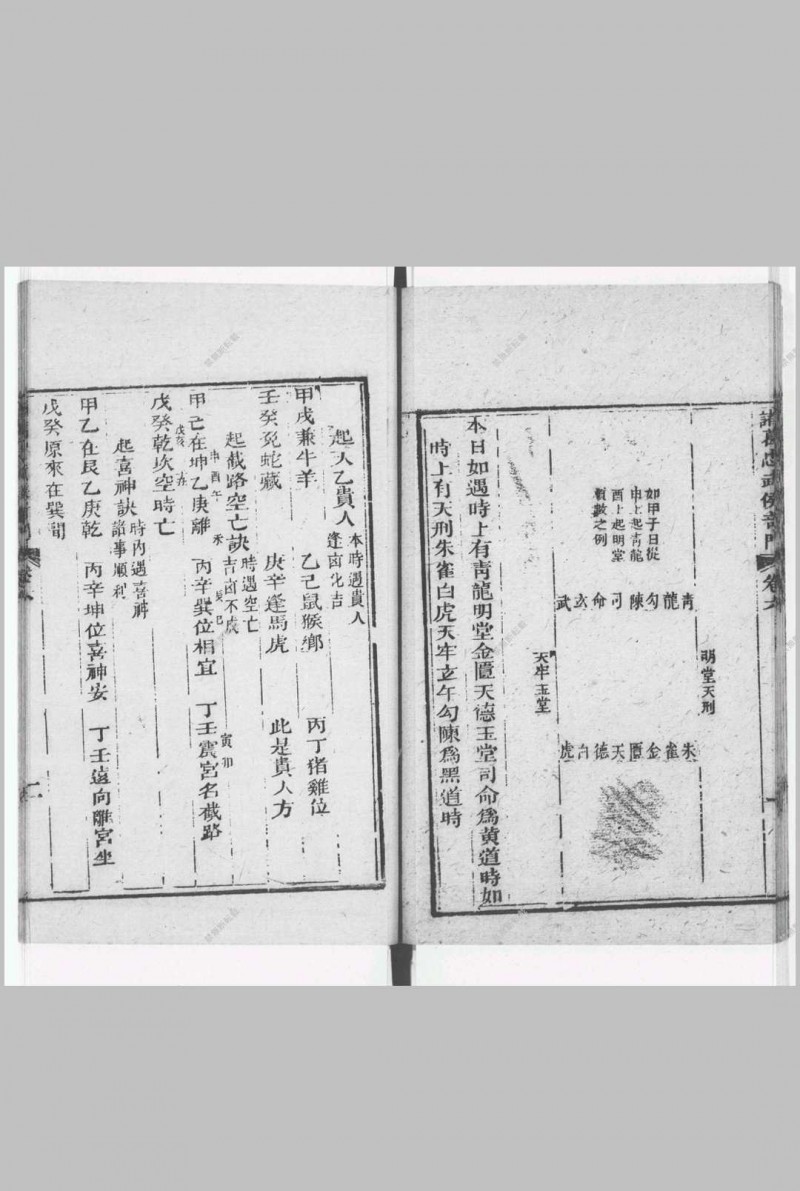 明堂天刑
如甲子日從
申上起青龍
酉上起明堂
順數之例
青龍勾陳司命玄武
朱雀金匱天德白虎
天牢玉堂
本日如遇時上有青龍明堂金匱天德玉堂司命爲黃道時如
時上有天刑朱雀白虎天牢玄午勾陳爲黑道時
起天乙貴人 本時遇貴人
逢凶化吉
甲戌兼牛羊 乙己鼠猴鄉 丙丁猪雞位
壬癸兔蛇藏 庚辛逢馬虎 此是貴人方
起截路空亡訣 時遇空亡
吉凶不成
申酉午未 辰巳 寅卯
甲己在坤乙庚離 丙辛巽位相宜 丁壬震宮名截路
戊癸乾坎空時亡
起喜神訣 時內遇喜神
諸事順利
甲乙在艮乙庚乾 丙辛坤位喜神安 丁壬遠向離宮坐
戊癸原來在巽間
二